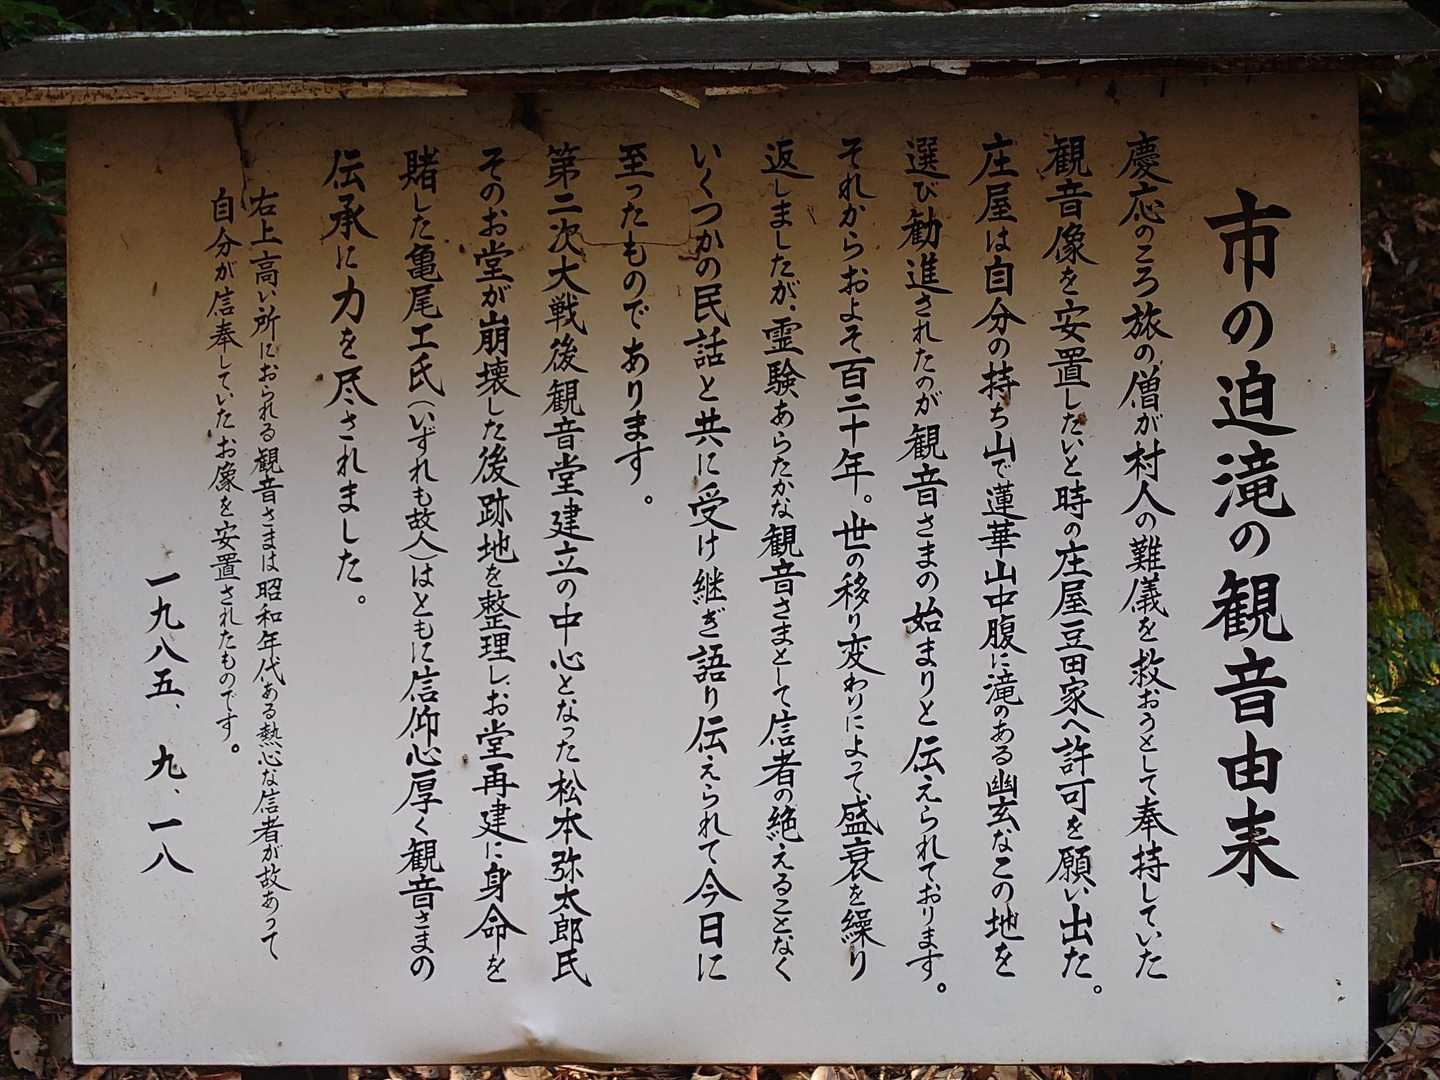 市の迫滝の観音由来
慶応のころ旅の僧が村人の難儀を救おうとして奉持していた
観音像を安置したいと時の庄屋豆田家へ許可を願い出た。
庄屋は自分の持ち山で蓮華山中腹に滝のある幽玄なこの地を
選び勧進されたのが観音さまの始まりと伝えられております。
それからおよそ百二十年。世の移り変わりによって、盛衰を繰り
返しましたが、霊験あらたかな観音さまとして信者の絶えることなく
いくつかの民話と共に受け継ぎ語り伝えられて今日に
至ったものであります。
第二次大戦後観音堂建立の中心となった松本弥太郎氏
そのお堂が崩壊した後跡地を整理し、お堂再建に身命を
賭した亀尾工氏(いずれも故人)はともに信仰心厚く観音さまの
伝承に力を尽されました。
右上高い所におられる観音さまは昭和年代ある熱心な信者が故あって
自分が信奉していたお像を安置されたものです。
一九八五、九、一八